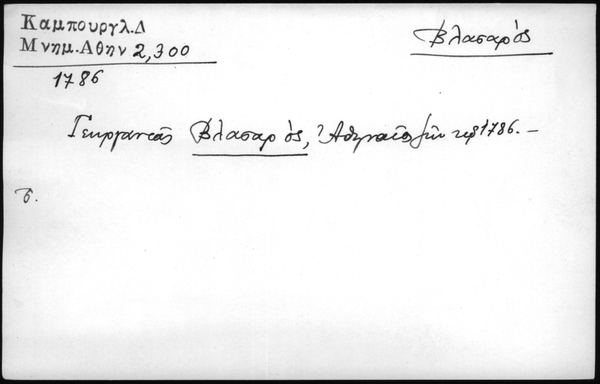 Καμπουργλ.Δ
Μνημ.Αθην 2,300
Βλασαρός
1786
Γεωργαντᾶς Βλασαρός, Ἀθηναῖος ζῶν τῷ 1786. —